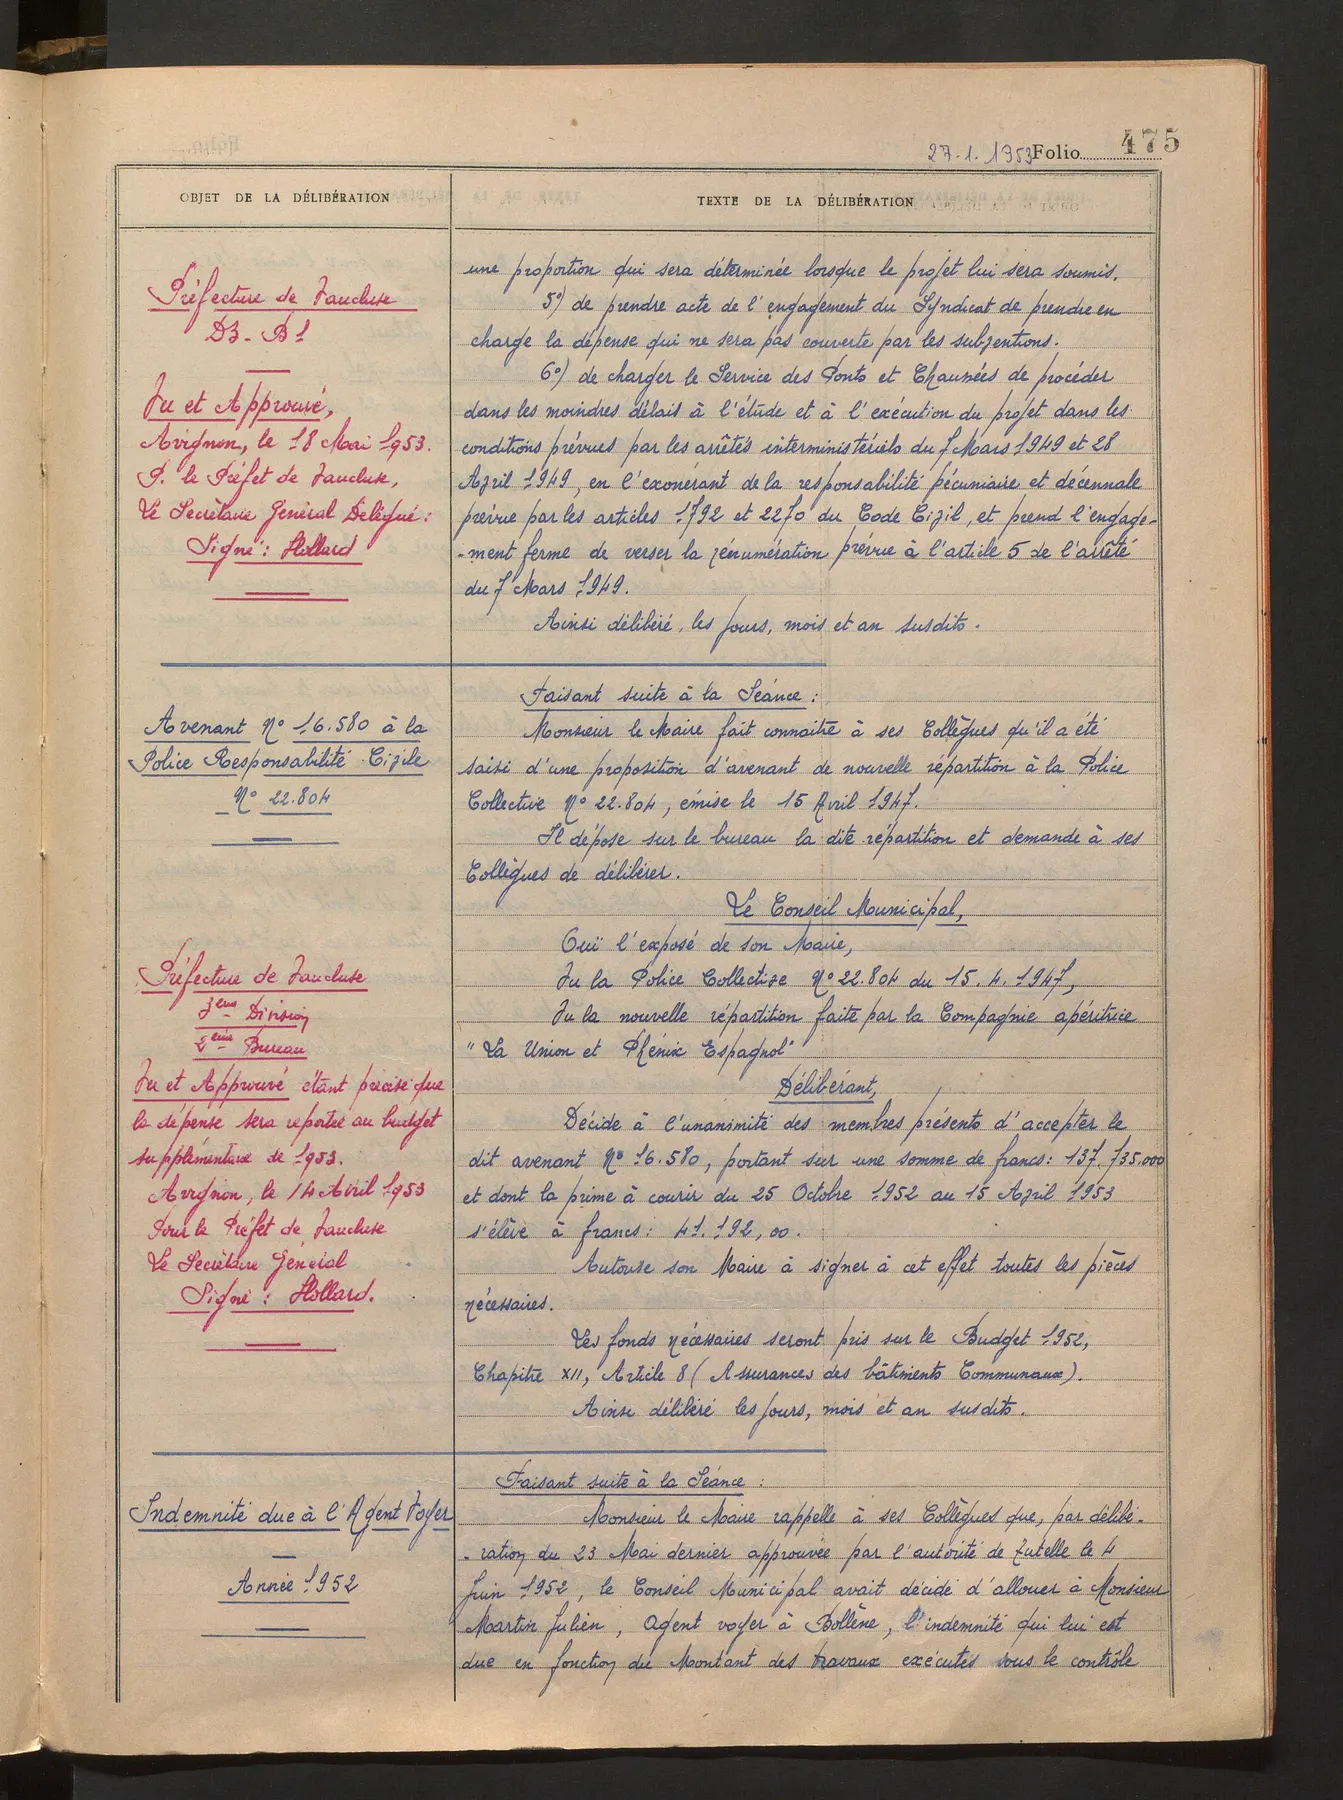 27.1.1953 Folio 475
OBJET DE LA DÉLIBÉRATION
TEXTE DE LA DÉLIBÉRATION
Préfecture de Vaucluse
D3 - B1
Vu et Approuvé,
Avignon, le 18 Mai 1953.
P. le Préfet de Vaucluse,
Le Secrétaire Général Délégué :
Signé : Hollard
une proportion qui sera déterminée lorsque le projet lui sera soumis.
5°) de prendre acte de l'engagement du Syndicat de prendre en
charge la dépense qui ne sera pas couverte par les subventions.
6°) de charger le Service des Ponts et Chaussées de procéder
dans les moindres délais à l'étude et à l'exécution du projet dans les
conditions prévues par les arrêtés interministériels du 7 Mars 1949 et 28
Avril 1949, en l'exonérant de la responsabilité pécuniaire et décennale
prévue par les articles 1792 et 2270 du Code Civil, et prend l'engage-
-ment ferme de verser la rénumération prévue à l'article 5 de l'arrêté
du 7 Mars 1949.
Ainsi délibéré, les jours, mois et an susdits.
Avenant N° 16.580 à la
Police Responsabilité Civile
N° 22.804
Faisant suite à la Séance :
Monsieur le Maire fait connaitre à ses Collègues qu'il a été
saisi d'une proposition d'avenant de nouvelle répartition à la Police
Collective N° 22.804, émise le 15 Avril 1947.
Il dépose sur le bureau la dite répartition et demande à ses
Collègues de délibérer.
Le Conseil Municipal,
Ouï l'exposé de son Maire,
Vu la Police Collective N° 22.804 du 15.4.1947,
Vu la nouvelle répartition faite par la Compagnie apéritrice
"La Union et Phénix Espagnol"
Délibérant,
Décide à l'unanimité des membres présents d'accepter le
dit avenant N° 16.580, portant sur une somme de francs : 137.735.000
et dont la prime à courir du 25 Octobre 1952 au 15 Avril 1953
s'élève à francs : 41.192,00.
Autorise son Maire à signer à cet effet toutes les pièces
nécessaires.
Les fonds nécessaires seront pris sur le Budget 1952,
Chapitre XII, Article 8 (Assurances des bâtiments Communaux).
Ainsi délibéré les jours, mois et an susdits.
Préfecture de Vaucluse
3eme Division
2eme Bureau
Vu et Approuvé étant précisé que
la dépense sera reportée au budget
supplémentaire de 1953.
Avignon, le 14 Avril 1953
Pour le Préfet de Vaucluse
Le Secrétaire Général
Signé : Hollard.
Indemnité due à l'Agent Voyer
Année 1952
Faisant suite à la Séance :
Monsieur le Maire rappelle à ses Collègues que, par délibé-
-ration du 23 Mai dernier approuvée par l'autorité de Tutelle le 4
Juin 1952, le Conseil Municipal avait décidé d'allouer à Monsieur
Martin Julien, Agent voyer à Bollène, l'indemnité qui lui est
due en fonction du Montant des travaux exécutés sous le contrôle